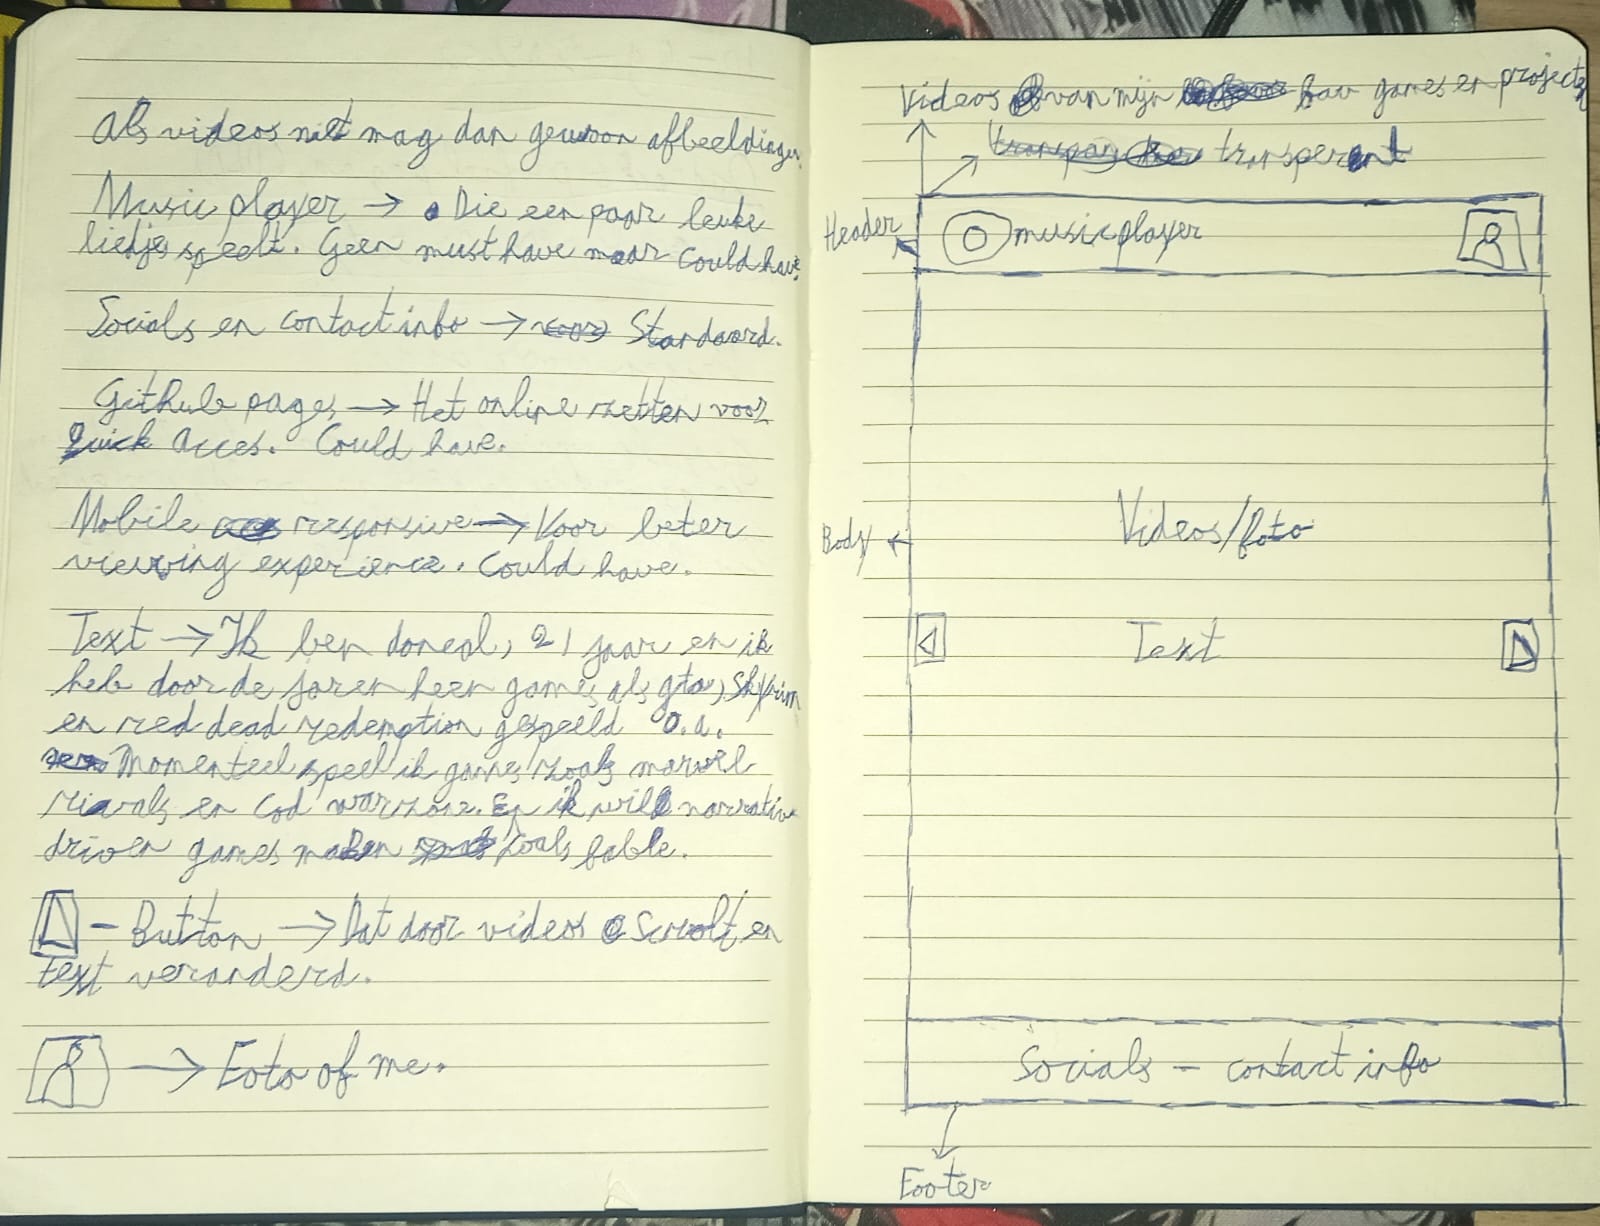 Als videos niet mag dan gewoon afbeeldingen
Music player → Die een paar leuke
liedjes speelt. Geen must have maar Could have.
Socials en contact info → Standaard.
Github pages → Het online zetten voor
Quick acces. Could have.
Mobile responsive → Voor beter
viewing experience. Could have.
Text → Ik ben doneal, 21 jaar en ik
heb door de jaren heen games als gta, Skyrim
en red dead redemption gespeeld o.a.
Momenteel speel ik games zoals marvel
rivals en Cod warzone. En ik will narrative
driven games maken zoals fable.
- Button → Dat door videos scrollt, en
text veranderd.
→ Foto of me.
Videos van mijn fav games en projects
transperent
Header
music player
Body
Videos/foto
Text
Socials - contact info
Footer